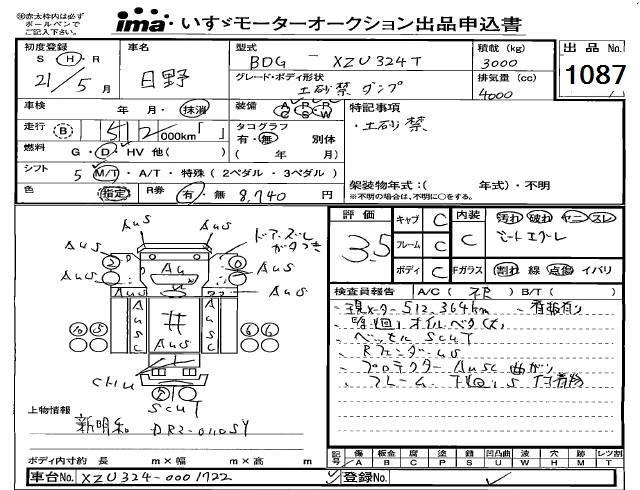 ㊟赤太枠内は必ず
ボールペンで
ご記入下さい。
ima いすゞモーターオークション出品申込書
初度登録 車名 型式 積載(kg) 出品No.
S H R 日野 BDG - XZU324T 3000 1087
21/5月 グレード・ボディ形状 排気量(cc)
土砂禁ダンプ 4000
車検 年 月・抹消 装備 A P R C S W 特記事項
走行 B 512000km「 」 タコグラフ 有・無 別体 ・土砂禁
燃料 G・D・HV 他( ) ( 年 月)
シフト 5 M/T・A/T・特殊(2ペダル・3ペダル)
架装物年式:( 年式)・不明
色 指定 R券 有・無 8,740円 ※不明の場合は、不明に○をする。
評価 キャブ C 内装 汚れ 破れ ヤニ スレ
3.5 フレーム C C シートエグレ
ボディ C Fガラス 割れ 線 点傷 イバリ
AuS AuS
AuS AuS
Au
AuS AuS
AuSC AuSC
AuS
CHU
SCUT
検査員報告 A/C( ) B/T( )
現メーター512,364km 、看板有り
オイル
ベッセル SCUT
Rフェンダー US
プロテクター AUSC 曲がり
フレーム 下回り S 付着物
上物情報
新明和 DR2-0110SY
ボディ内寸約 長 m×幅 m×高 m
記号 傷 A 板金 B 腐 C 塗 P 錆 S 凹凸曲 U 波 W 穴 H 跡 M レンズ割 T
車台No. XZU324-0001722 登録No.